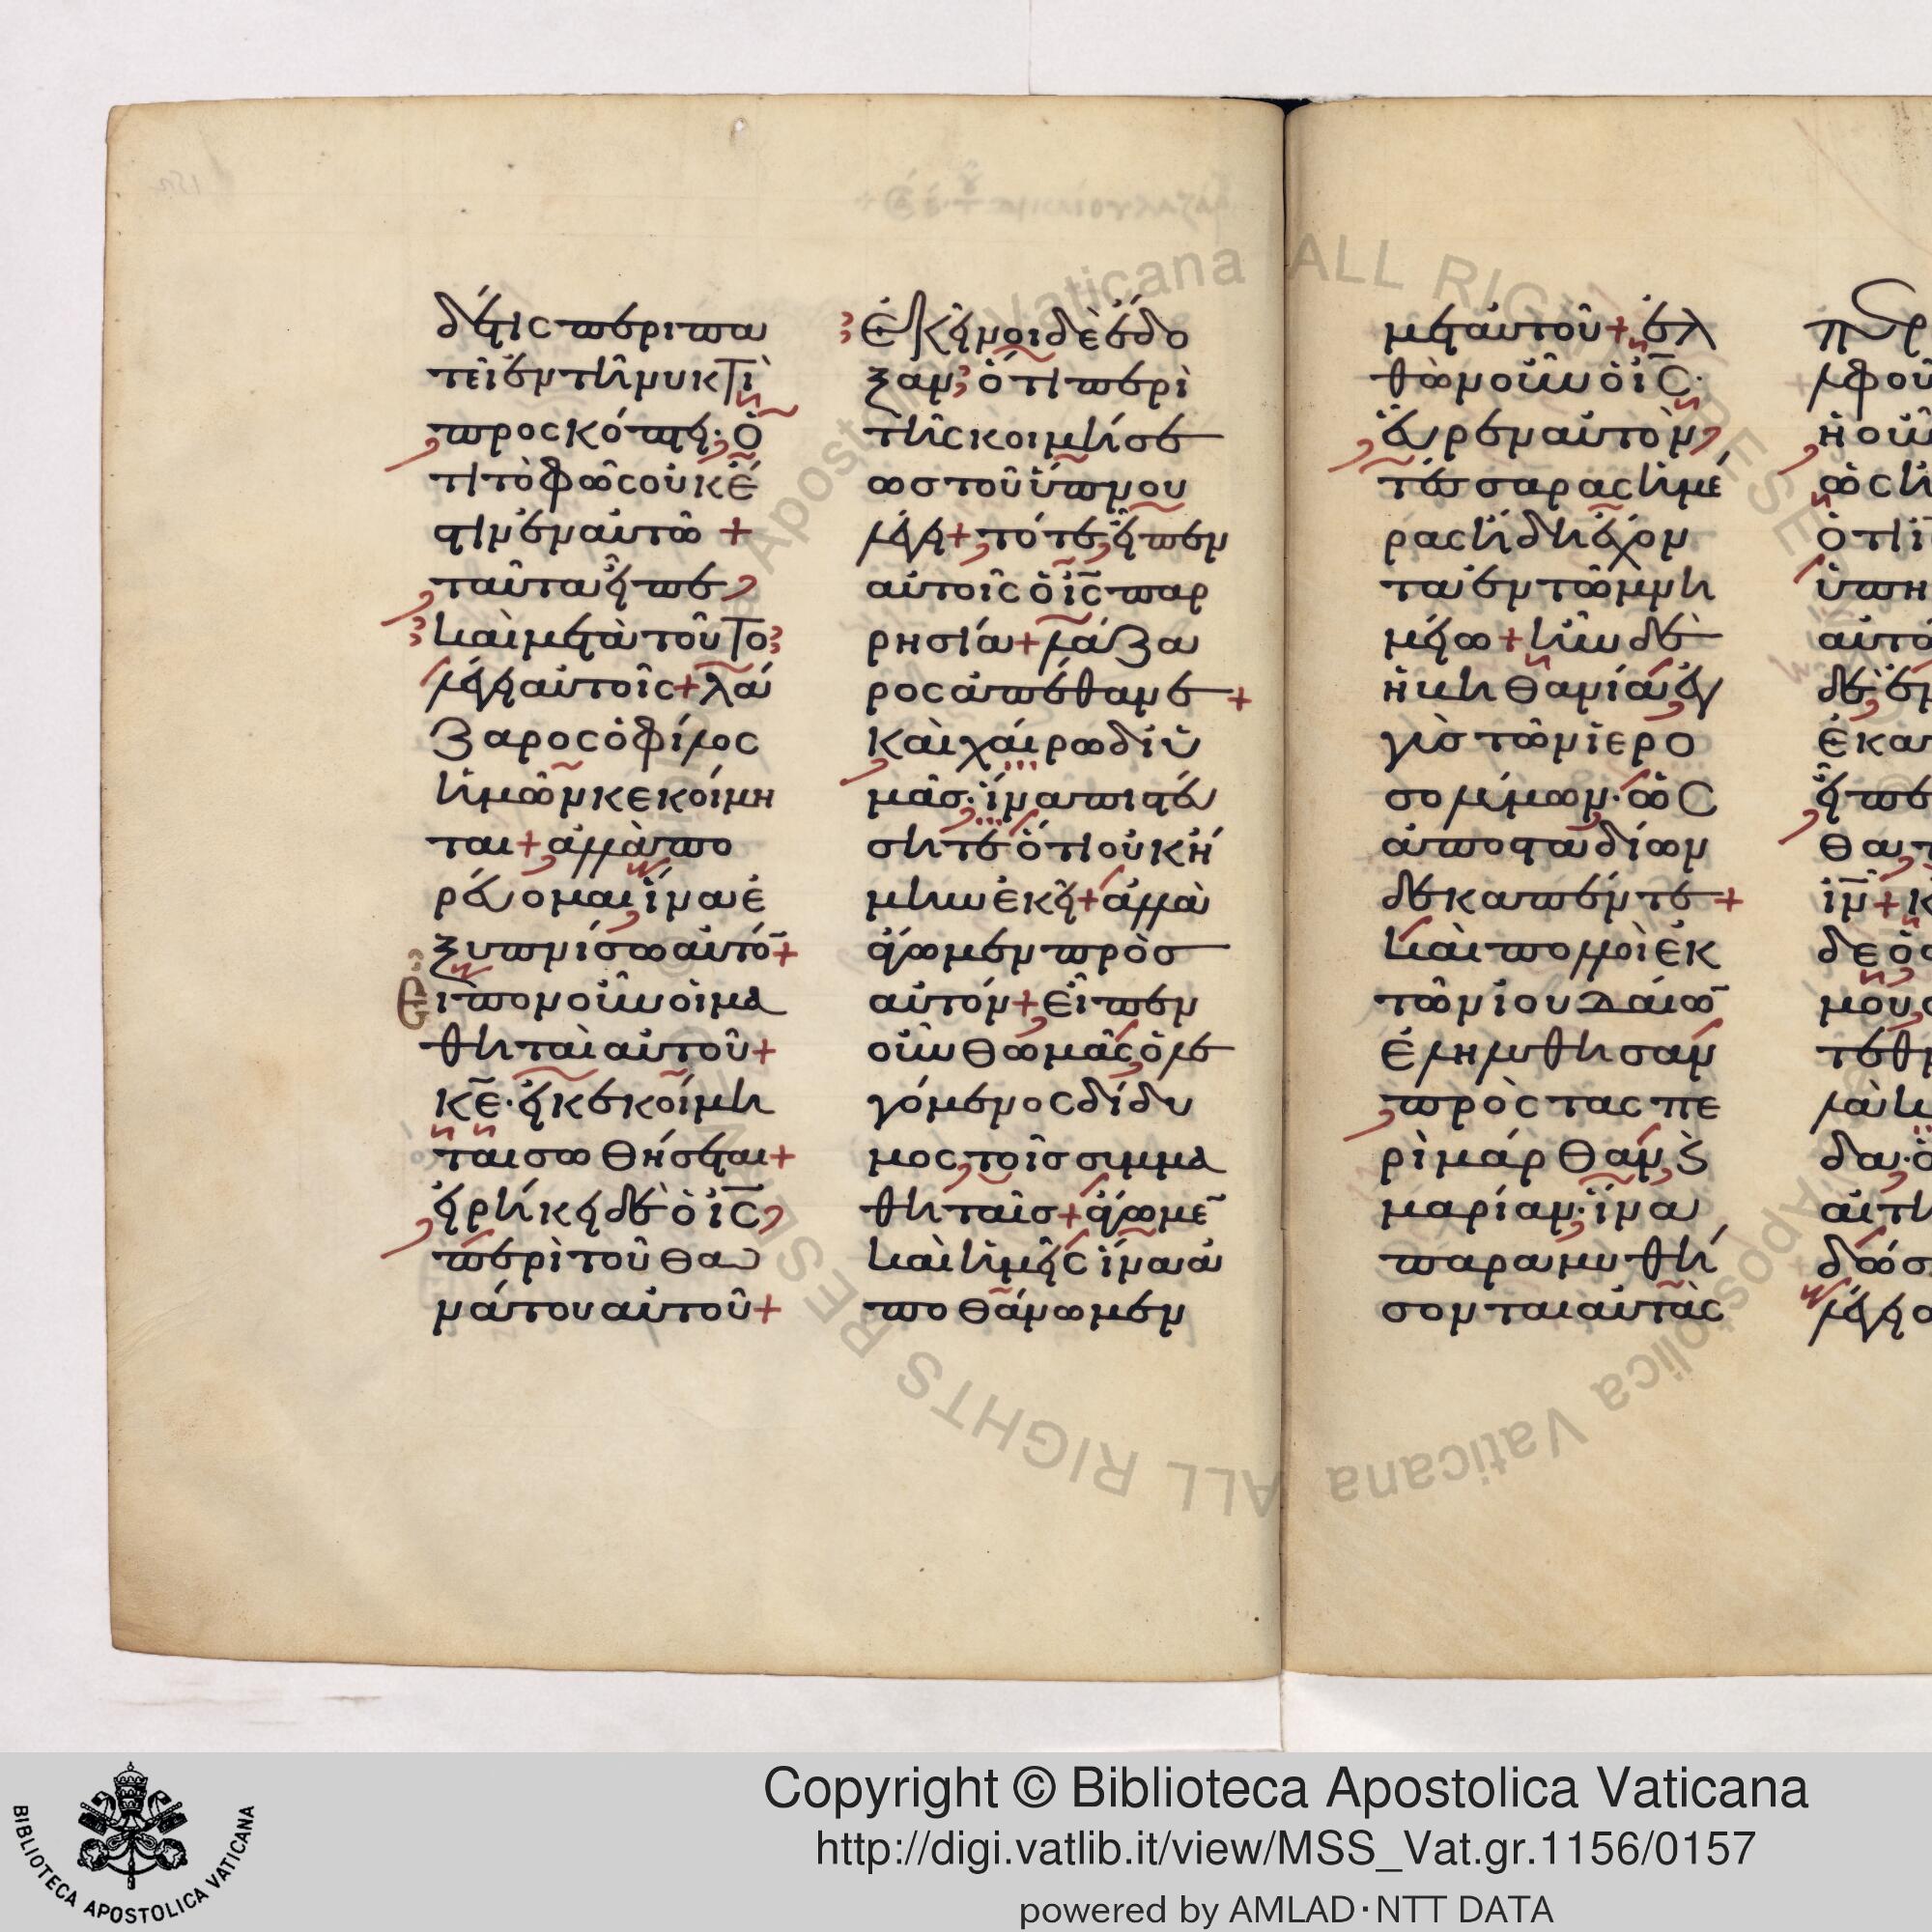 δέ τις περιπα
τεῖ ἐν τῆ νυκτὶ
προσκόπτει· ὅ
τι τὸ φῶς οὐκ ἔ
στιν ἐν αὐτῶ +
ταῦτα εἶπε
καὶ μετὰ τοῦτο
λέγει αὐτοῖς + λά
ζαρος ὁ φίλος
ἡμῶν κεκοίμη
ται + ἀλλὰ πο
ρεύομαι ἵνα ἐ
ξυπνίσω αὐτό̄ +
Εἶπον οὖν οἱ μα
θηταὶ αὐτοῦ +
κ̄ε̄· εἰ κεκοίμη
ται σωθήσεται +
εἰρήκει δὲ ὁ ἰ̄ς̄
περὶ τοῦ θα
νάτου αὐτοῦ +
Ἐκεῖνοι δὲ ἔδο
ξαν ὅτι περὶ
τῆς κοιμήσε
ως τοῦ ὕπνου
λέγει + τότε εἶπεν
αὐτοῖς ὁ ἰ̄ς̄ παρ
ρησία + λάζα
ρος ἀπέθανε +
καὶ χαίρω δι ὑ
μᾶς· ἵνα πιστεύ
σητε ὅτι οὐκ ἤ
μην ἐκεῖ + ἀλλὰ
ἄγωμεν πρὸς
αὐτόν + εἶπεν
οὖν θωμᾶς ὁ λε
γόμενος δίδυ
μος τοῖς συμμα
θηταῖς + ἄγωμε̄
καὶ ἡμεῖς ἵνα ἀ
ποθάνωμεν
μετ αὐτοῦ + ἐλ
θὼν οὖν ὁ ἰ̄ς̄·
εὗρεν αὐτὸν
τέσσαρας ἡμέ
ρας ἤδη ἔχον
τα ἐν τῶ μνη
μείω + ἦν δὲ
ἡ βηθανία ἐγ
γὺς τῶν ἱερο
σολύμων· ὡς
ἀπὸ σταδίων
δεκαπέντε +
καὶ πολλοὶ ἐκ
τῶν ἰουδαίω̄
ἐληλύθησαν
πρὸς τὰς πε
ρὶ μάρθαν ϗ
μαρίαν· ἵνα
παραμυθή
σονται αὐτὰς
Copyright © Biblioteca Apostolica Vaticana
http://digi.vatlib.it/view/MSS_Vat.gr.1156/0157
powered by AMLAD·NTT DATA
BIBLIOTECA APOSTOLICA VATICANA